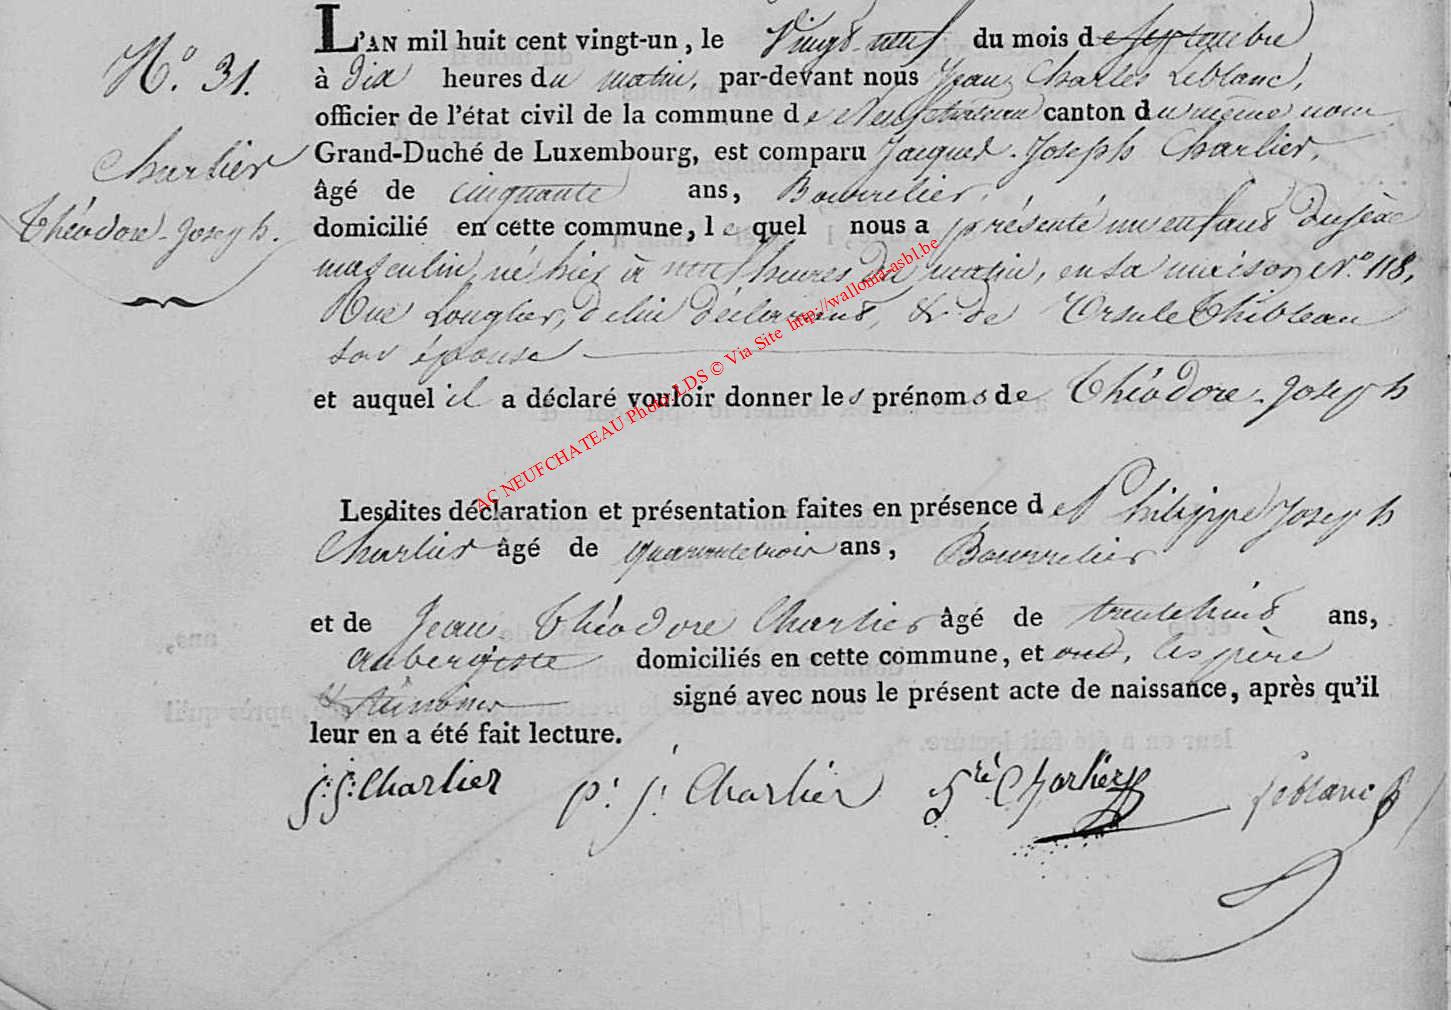 N.° 31.
Charlier
Théodore-Joseph.
L'AN mil huit cent vingt-un, le Vingt-neuf du mois de Septembre
à dix heures du matin, par-devant nous Jean Charles Leblanc,
officier de l'état civil de la commune de Neufchateau canton du même nom
Grand-Duché de Luxembourg, est comparu Jacques-Joseph Charlier,
âgé de cinquante ans, Bourrelier,
domicilié en cette commune, lequel nous a présenté un enfant du sexe
masculin, né hier à neuf heures du matin, en sa maison N.° 118,
Rue Longlier, de lui déclarant, & de Ursule Thibleau
son épouse
et auquel il a déclaré vouloir donner les prénoms de Théodore-Joseph
AC NEUFCHATEAU Photo LDS © Via Site http://walloma-asbl.be
Lesdites déclaration et présentation faites en présence de Philippe Joseph
Charlier âgé de quarante trois ans, Bourrelier
et de Jean Théodore Charlier âgé de trente huit ans,
aubergiste domiciliés en cette commune, et ont, les père
& témoins signé avec nous le présent acte de naissance, après qu'il
leur en a été fait lecture.
J: J: Charlier P: J: Charlier Charlier Leblanc